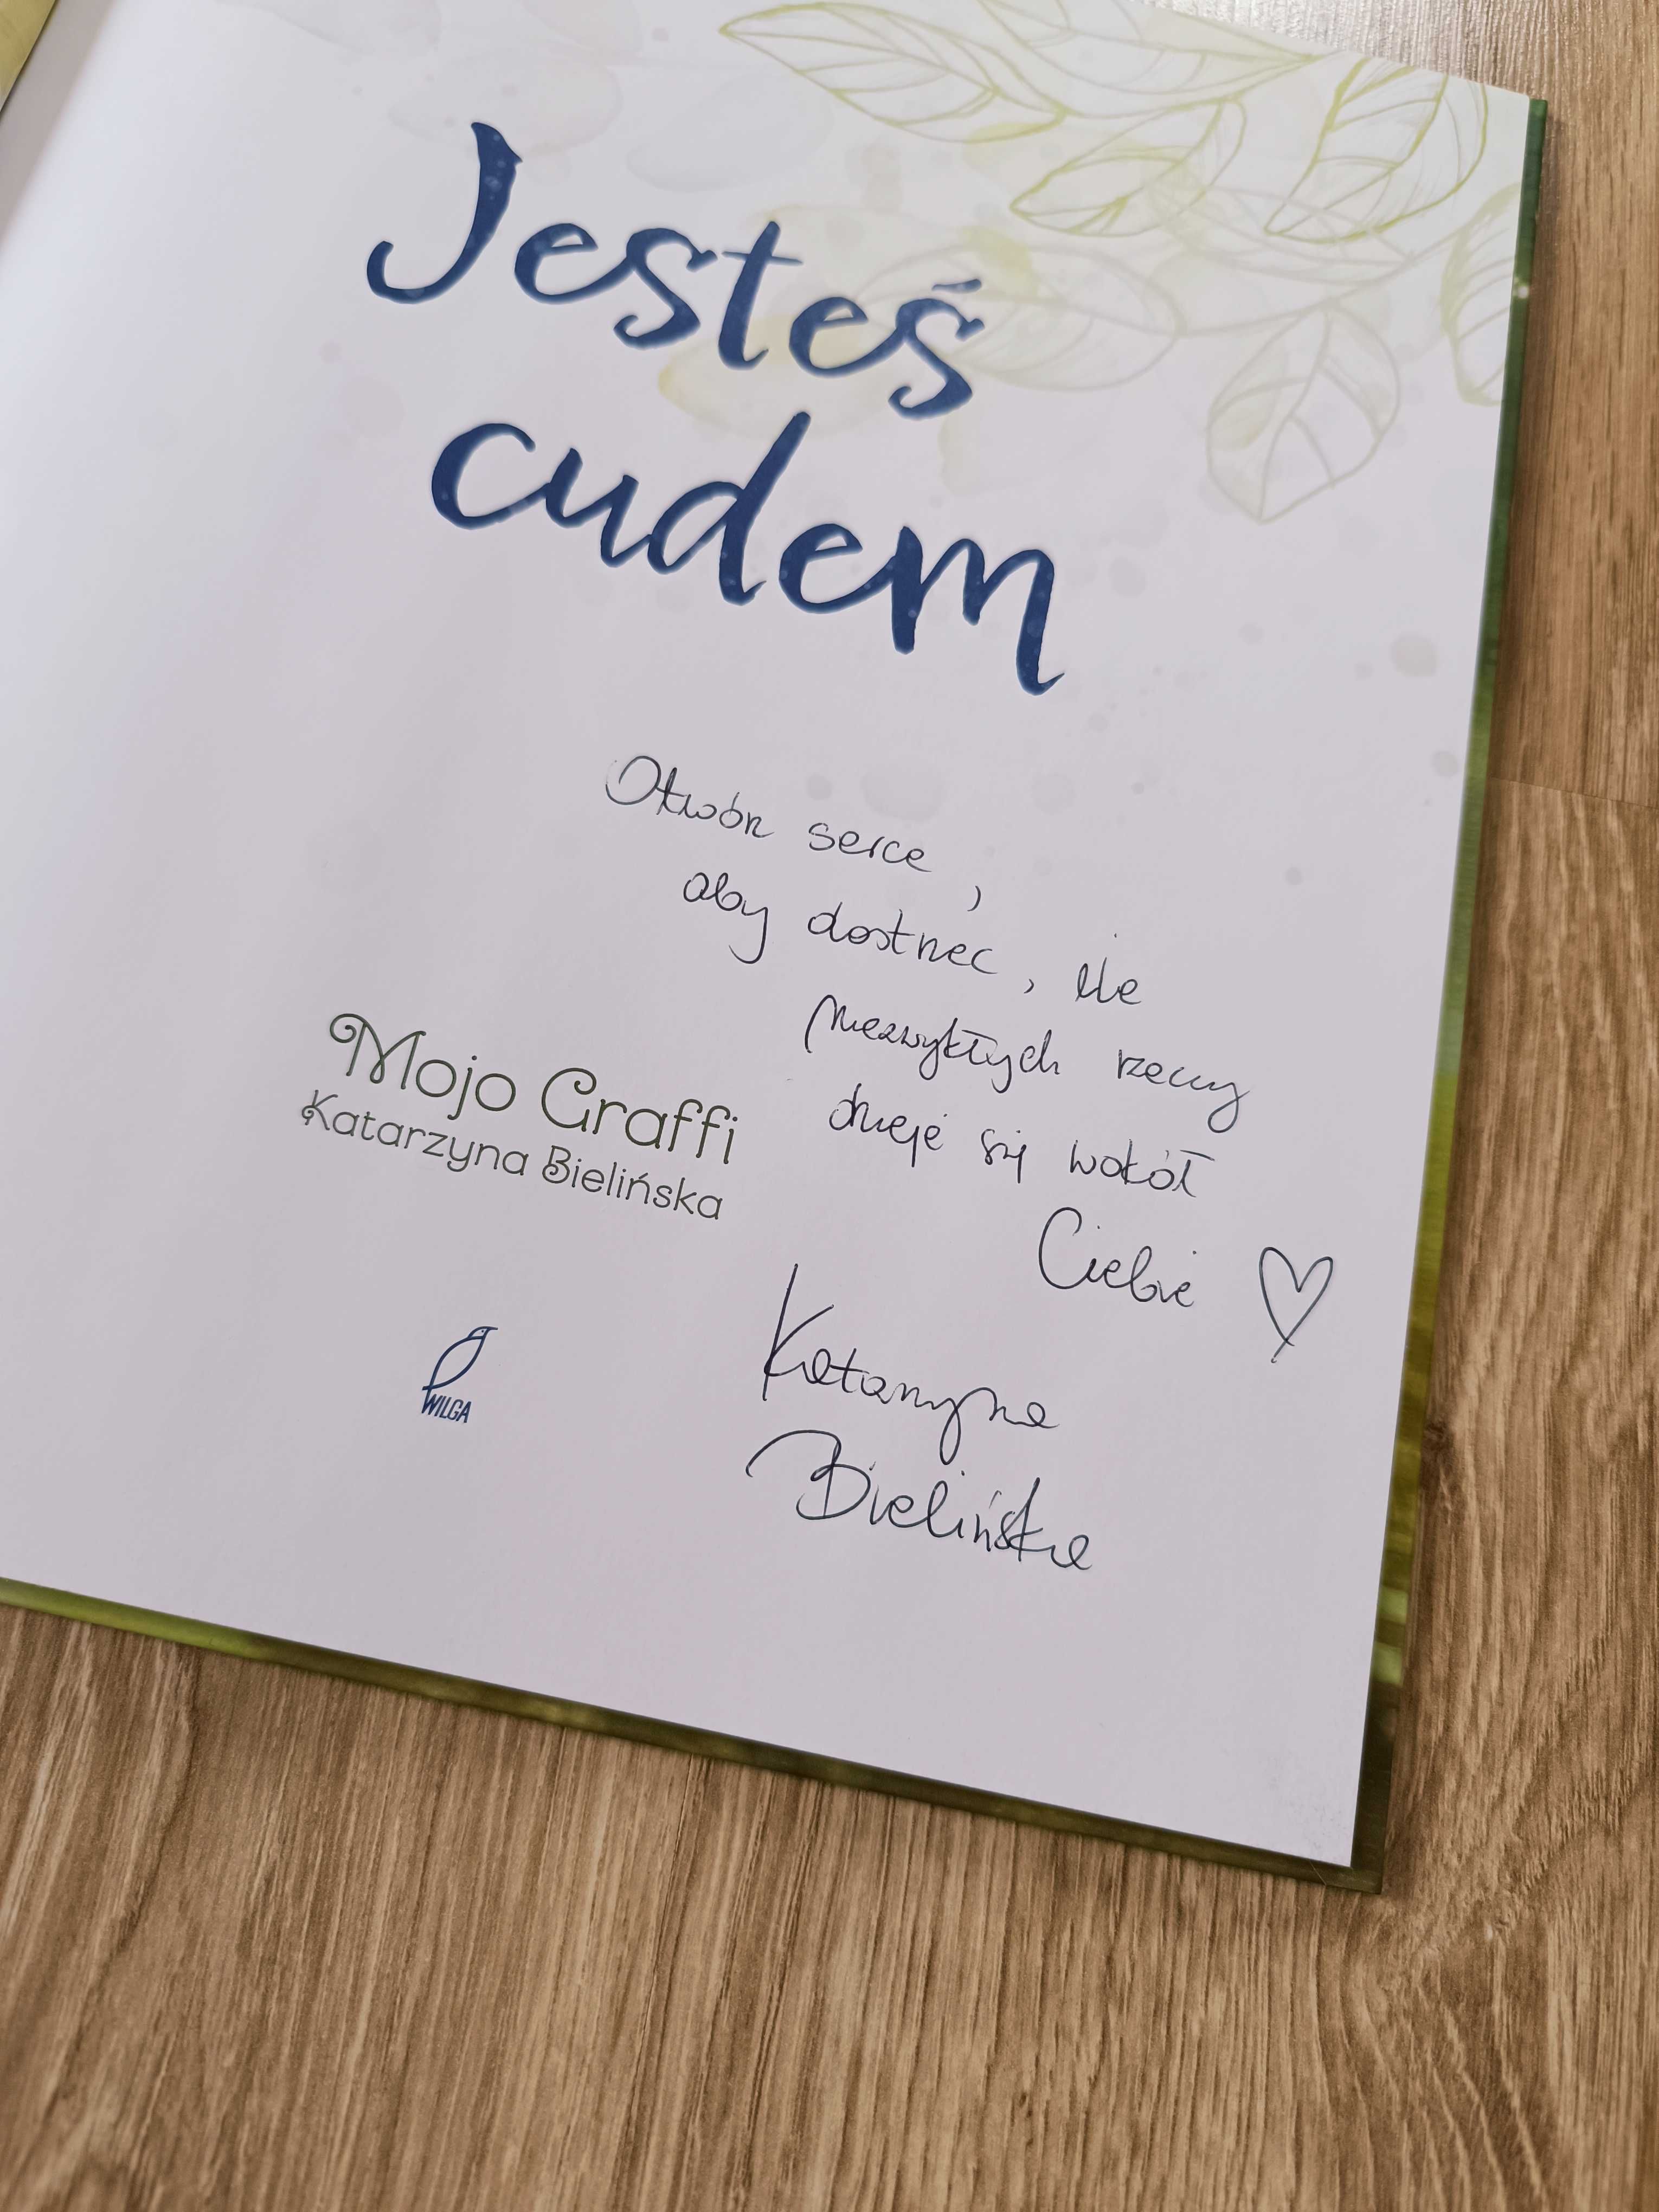 Jesteś
cudem
Otwórz serce,
aby dostrzec, ile
niezwykłych rzeczy
dzieje się wokół
Ciebie
Mojo Graffi
Katarzyna Bielińska
WILGA
Katarzyna
Bielińska